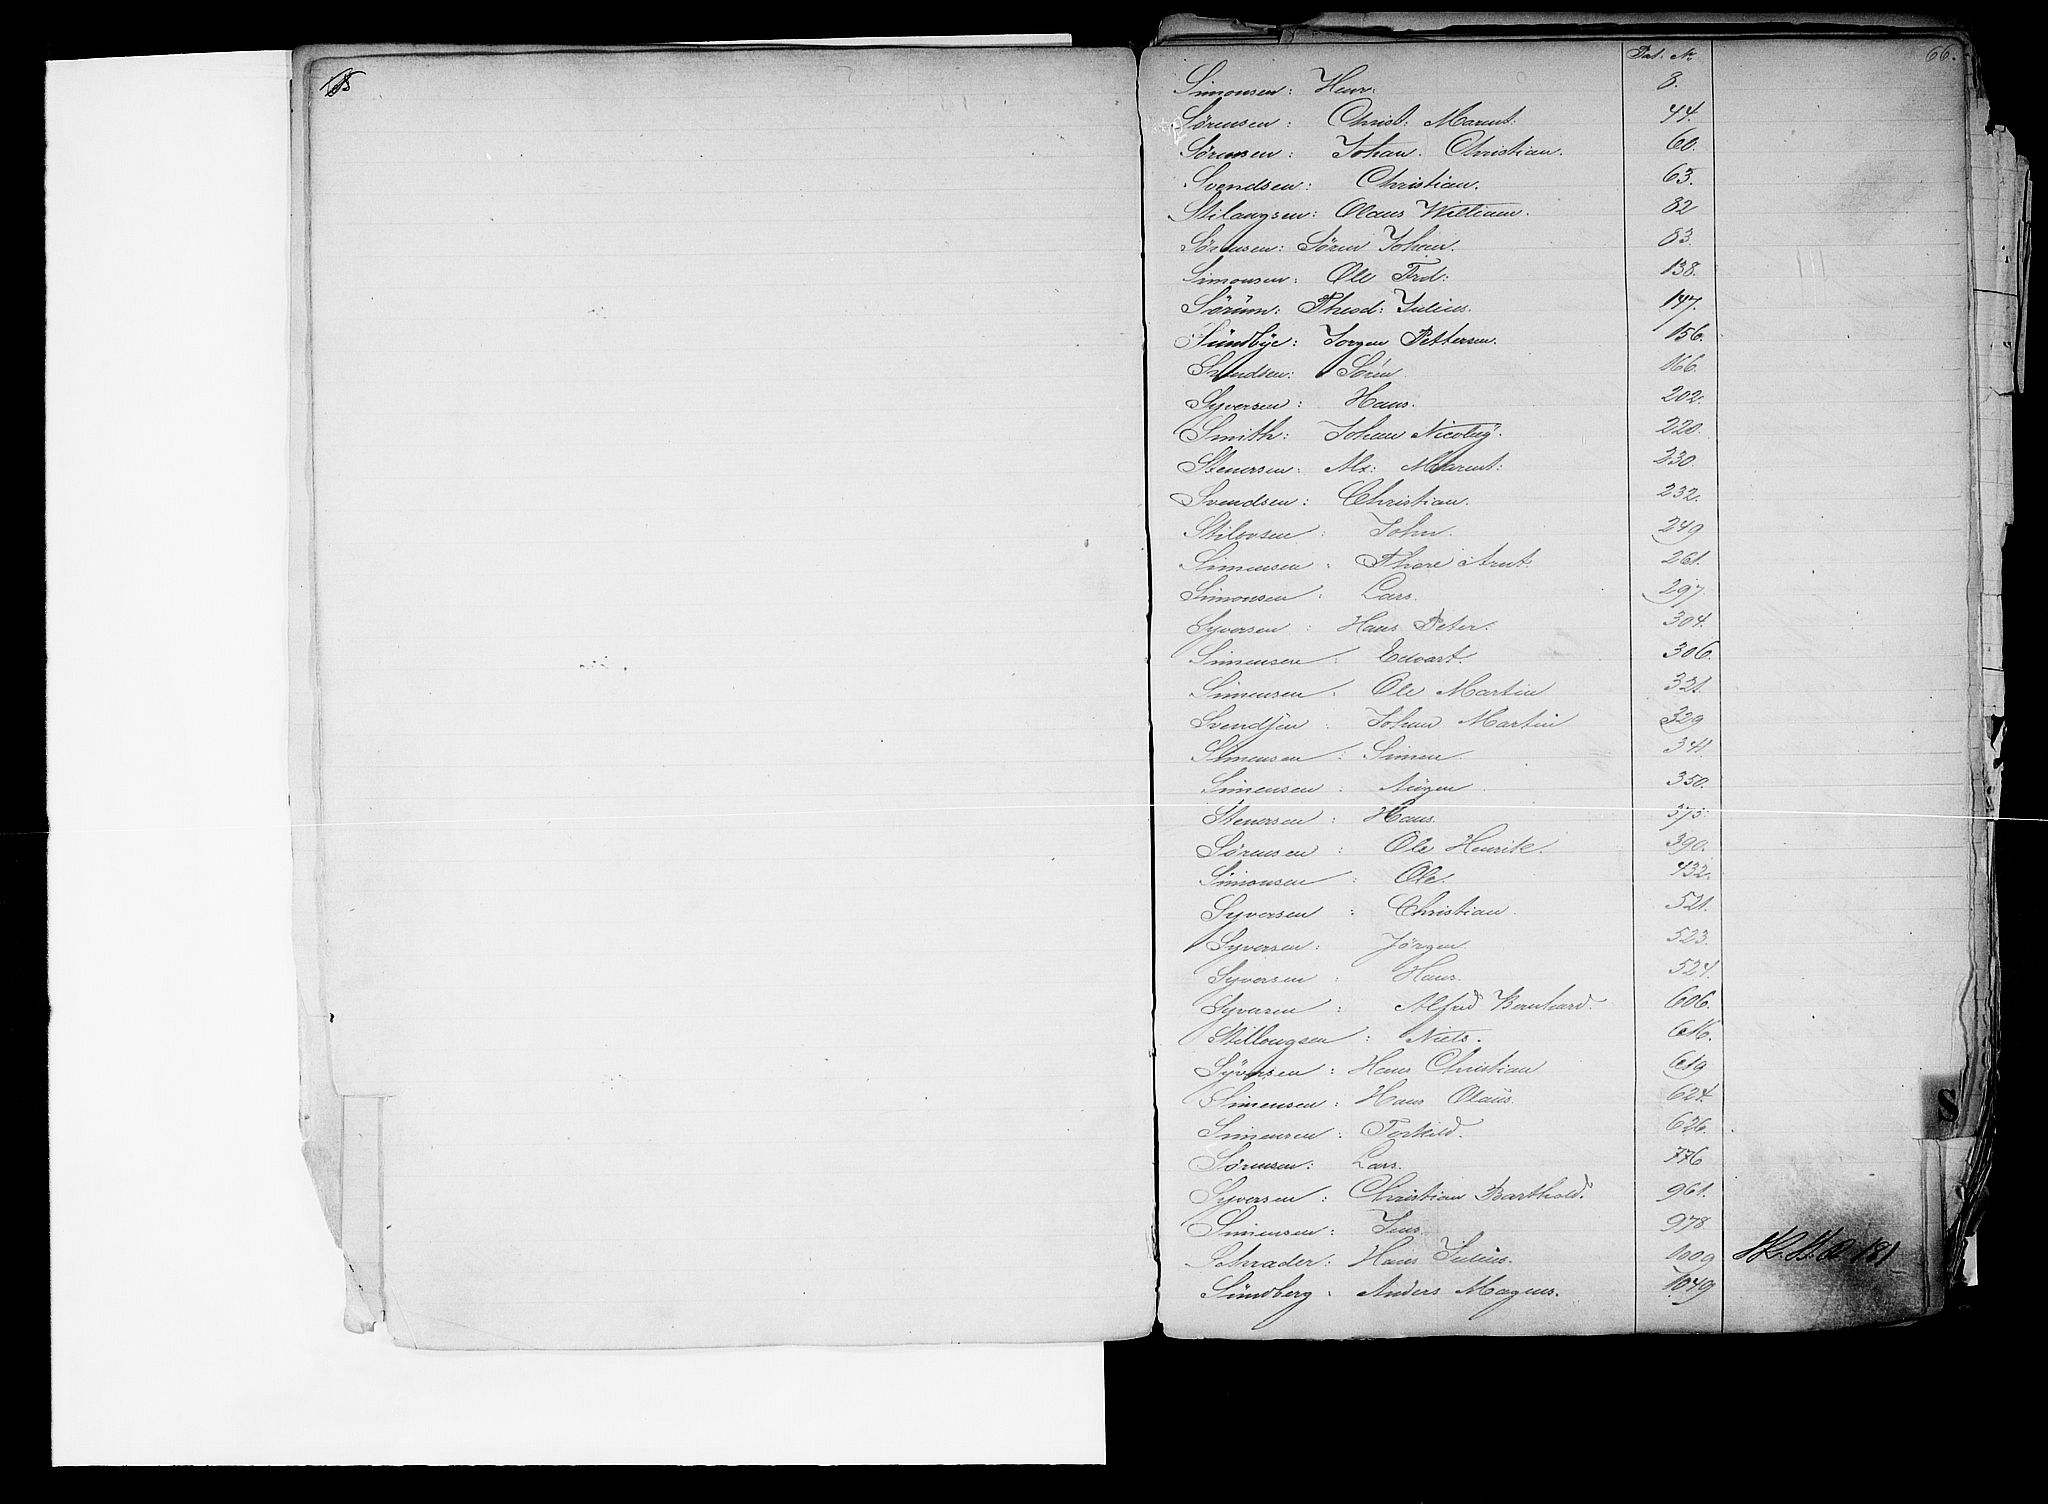 Pat. No
66.
Simonsen: Henr: 8.
Sørensen: Christ: Marent: 44.
Sørensen: Johan Christian. 60.
Svendsen: Christian. 63.
Stilaugsen: Olaus William. 82
Sørensen: Søren Johan. 83.
Simonsen: Ole Frd: 138.
Sørum: Theod: Julius. 147.
Sündbye: Jorgen Pettersen. 156.
Svendsen: Søren 166.
Syversen: Hans. 202.
Smith: Johan Nicolay. 220.
Stenersen: Alx: Marent: 230.
Svendsen: Christian. 232.
Stilovsen: John. 249
Simensen: Thore Arnt. 261.
Simonsen: Lars. 297.
Syversen: Hans Peter. 304.
Simensen: Edvart. 306.
Simensen: Ole Martin 321.
Svendsen: Johan Martin 329
Simensen: Simen 341
Simensen: Aügen 350.
Stenersen: Hans. 375.
Sørensen: Ole Henrik. 390.
Simonsen: Ole. 432.
Syversen: Christian. 521.
Syversen: Jørgen. 523.
Syversen: Hans. 524.
Syversen: Alfred Bernhard. 606.
Stillougsen: Niels. 616.
Syversen: Hans Christian 619
Simensen: Hans Olaüs. 624.
Simensen: Torkild. 626.
Sørensen: Lars. 776
Syversen: Christian Barthold. 961.
Simensen: Jens. 978.
Schrader: Hans Julius. 1009
Sündberg: Anders Magnus. 1049
S